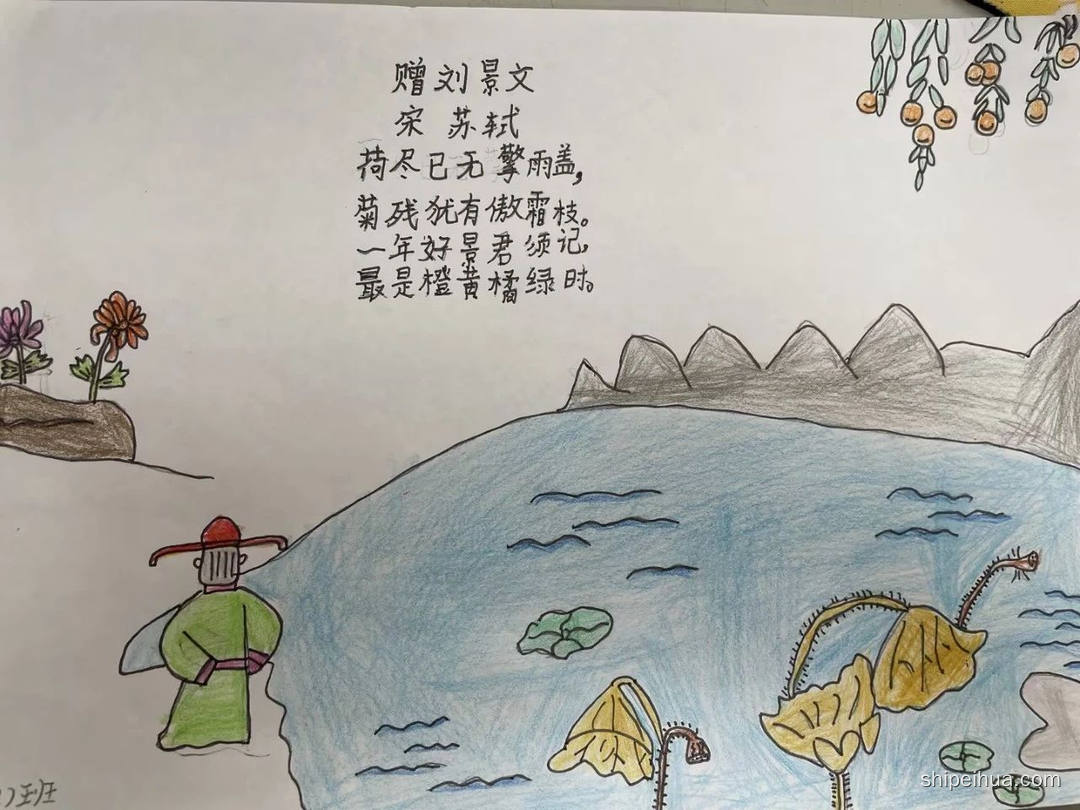 赠刘景文
宋 苏轼
荷尽已无擎雨盖,
菊残犹有傲霜枝。
一年好景君须记,
最是橙黄橘绿时。
班
shipeihua.com